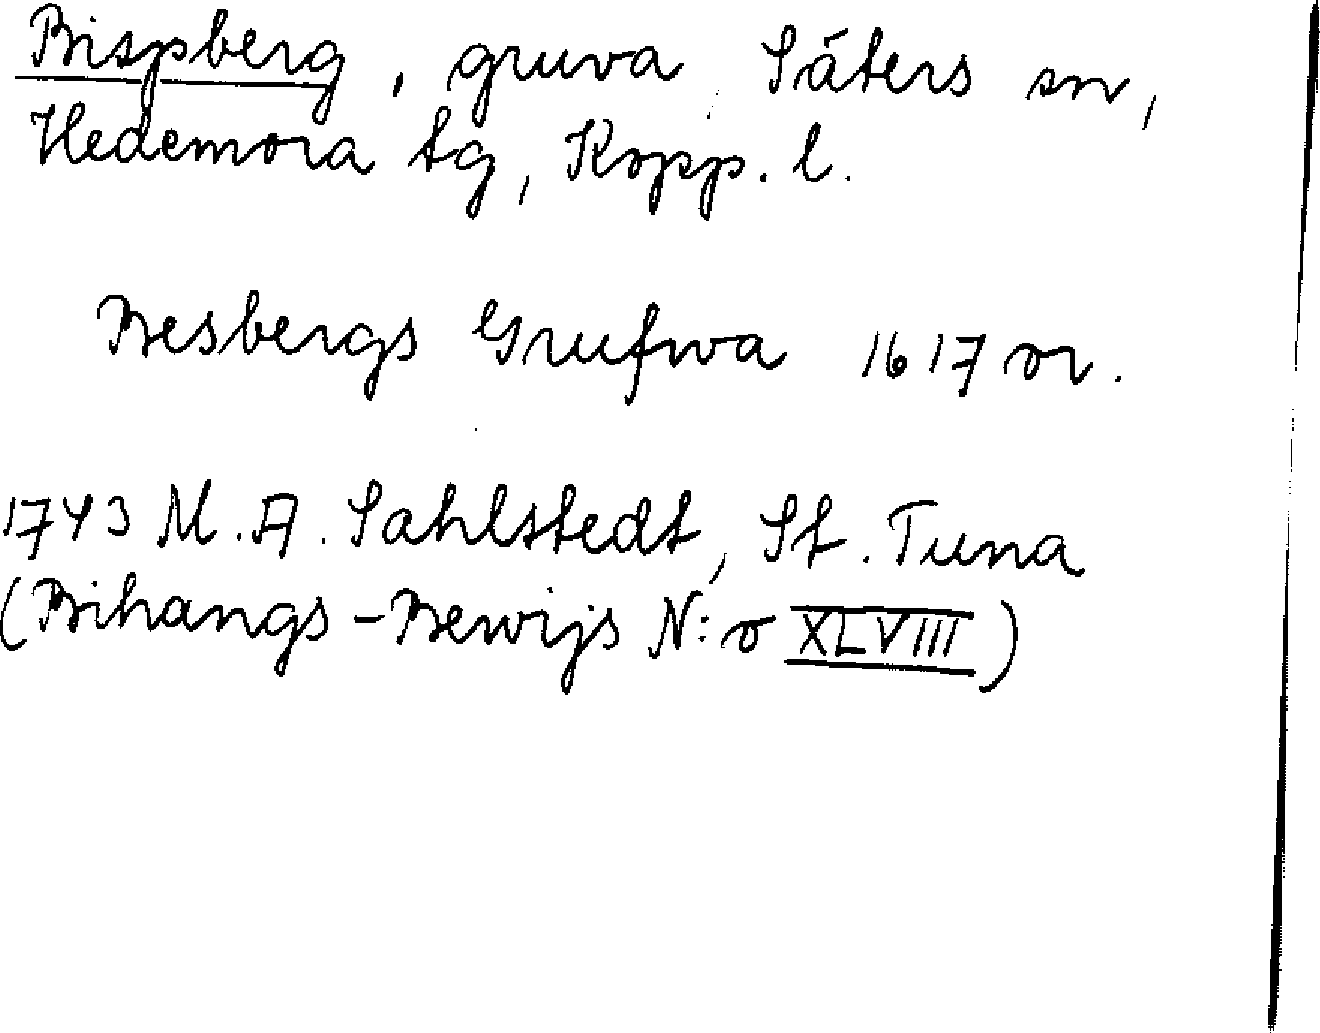 Bispberg, gruva, Säters sn,
Hedemora tg, Kopp. l.
Besbergs Grufwa 1617 or.
1743 M. A. Sahlstedt, St. Tuna
(Bihangs-Bewijs N:o XLVIII)